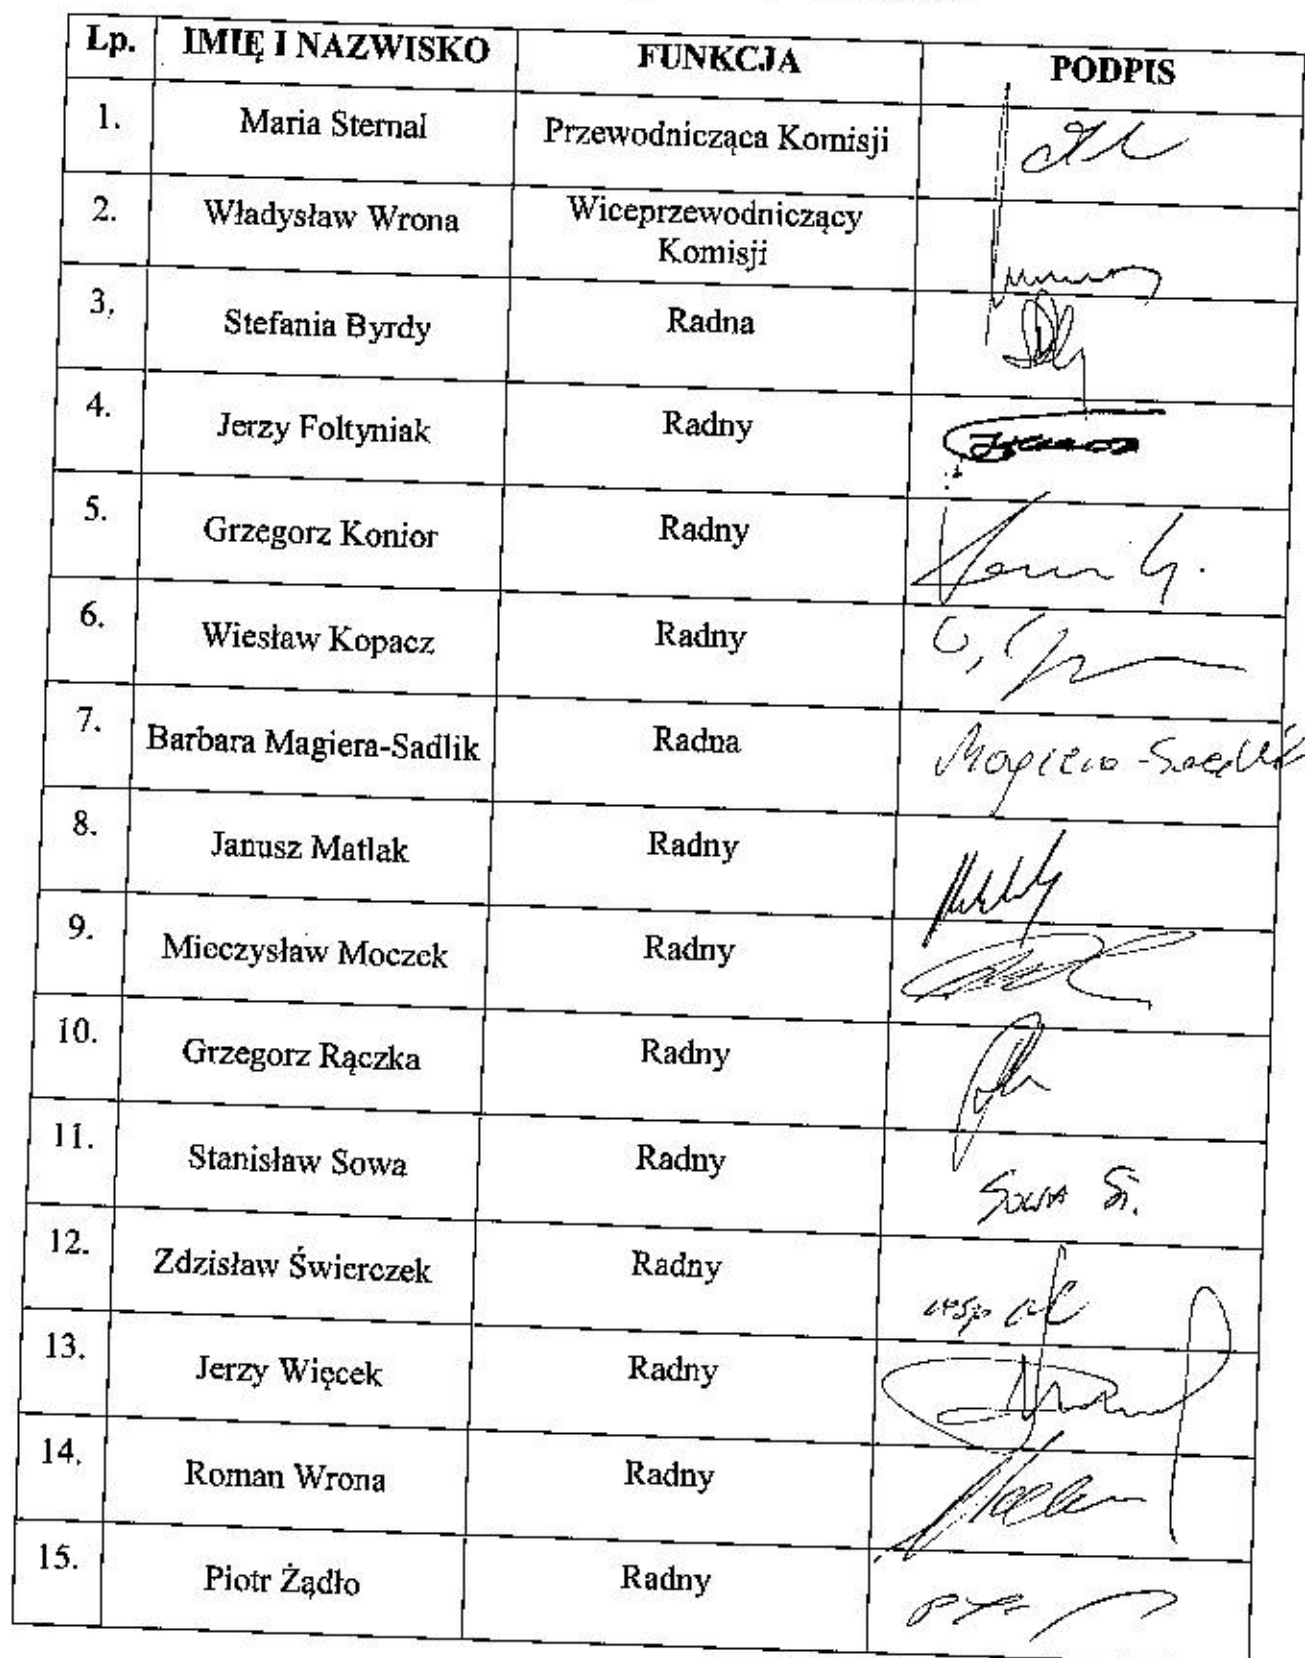 Lp. IMIĘ I NAZWISKO FUNKCJA PODPIS
1. Maria Sternal Przewodnicząca Komisji
2. Władysław Wrona Wiceprzewodniczący
Komisji
3. Stefania Byrdy Radna
4. Jerzy Foltyniak Radny
5. Grzegorz Konior Radny
6. Wiesław Kopacz Radny
7. Barbara Magiera-Sadlik Radna Magiera-Sadlik
8. Janusz Matlak Radny
9. Mieczysław Moczek Radny
10. Grzegorz Rączka Radny
11. Stanisław Sowa Radny Sowa St.
12. Zdzisław Świerczek Radny
13. Jerzy Więcek Radny
14. Roman Wrona Radny
15. Piotr Żądło Radny